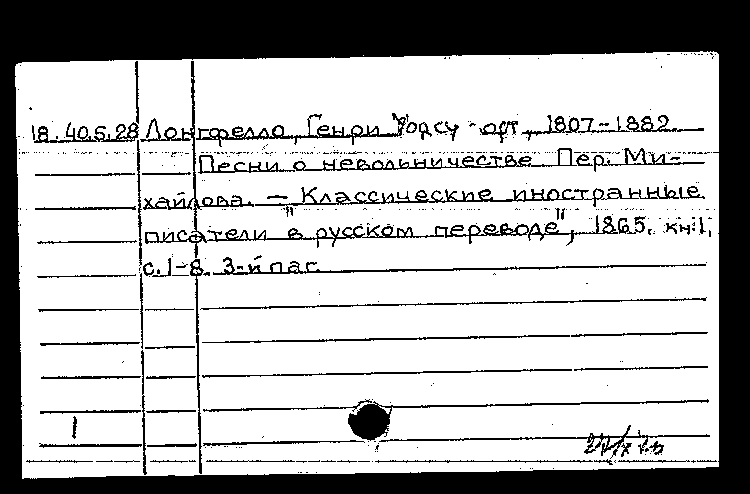 18.40.5.28 Лонгфелло, Генри Уодсуорт, 1807-1882.
Песни о невольничестве. Пер. Ми-
хайлова. — "Классические иностранные
писатели в русском переводе", 1865, кн.1,
с.1-8. 3-й паг.
1